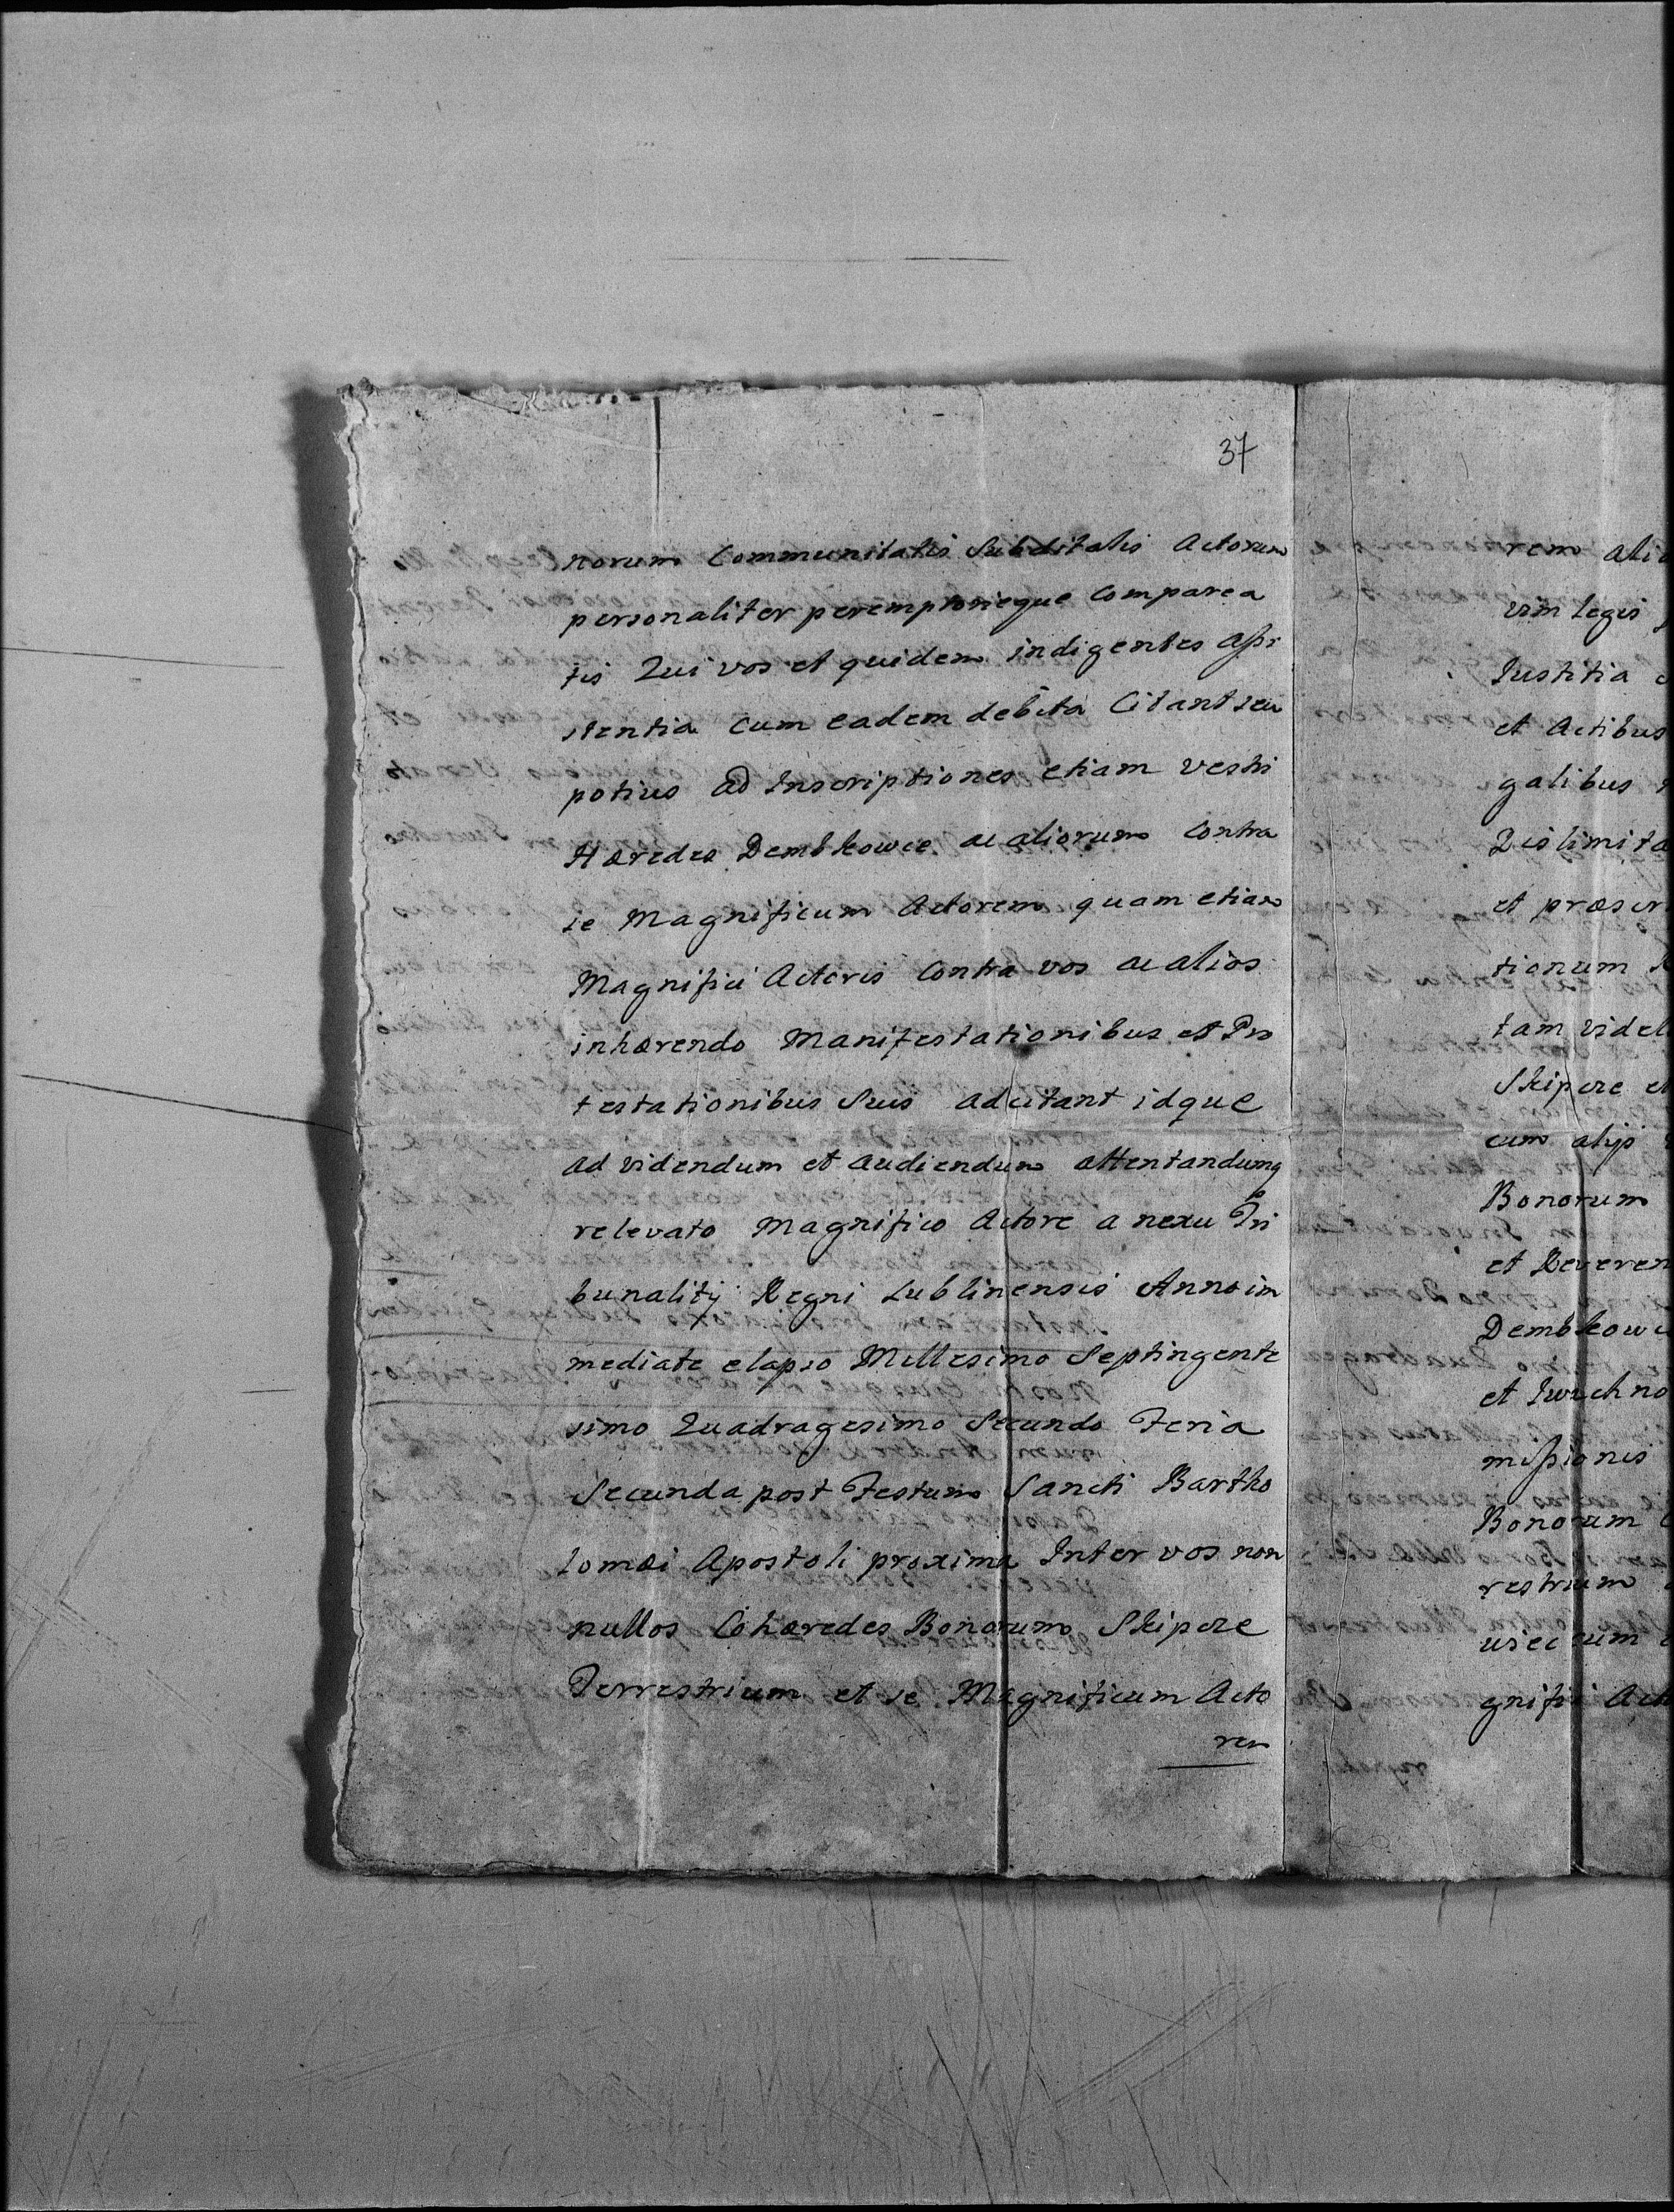 37
norum Communitatis Subditalis Actorum
personaliter peremptorieque Comparea
tis Qui vos et quidem indigentes assi
stentia Cum eadem debita Citant seu
potius ad Inscriptiones etiam vestri
Hæredes Dembkowce ac aliorum Contra
se Magnificum Actorem quam etiam
Magnifici Actoris Contra vos ac alios
inhærendo Manifestationibus et Pro
testationibus Suis adcitant idque
ad videndum et audiendum attentandumq
relevato Magnifico Actore a nexu Tri
bunalitij Regni Lublinensis Anno im
mediate elapso Millesimo Septingente
simo Quadragesimo Secundo Feria
Secunda post Festum Sancti Bartho
lomæi Apostoli proxima Inter vos non
nullos Cohæredes Bonorum Skipcze
Terrestrium et se Magnificum Acto
rem
rem
vim legis
Iustitia
et Actibus
galibus
Dislimita
et præscri
tionum
tam videl
Skipcze et
cum alijs
Bonorum
et Reveren
Dembkow
et Iwachno
missionis
Bonorum
restrium
usec cum
gnifici Act